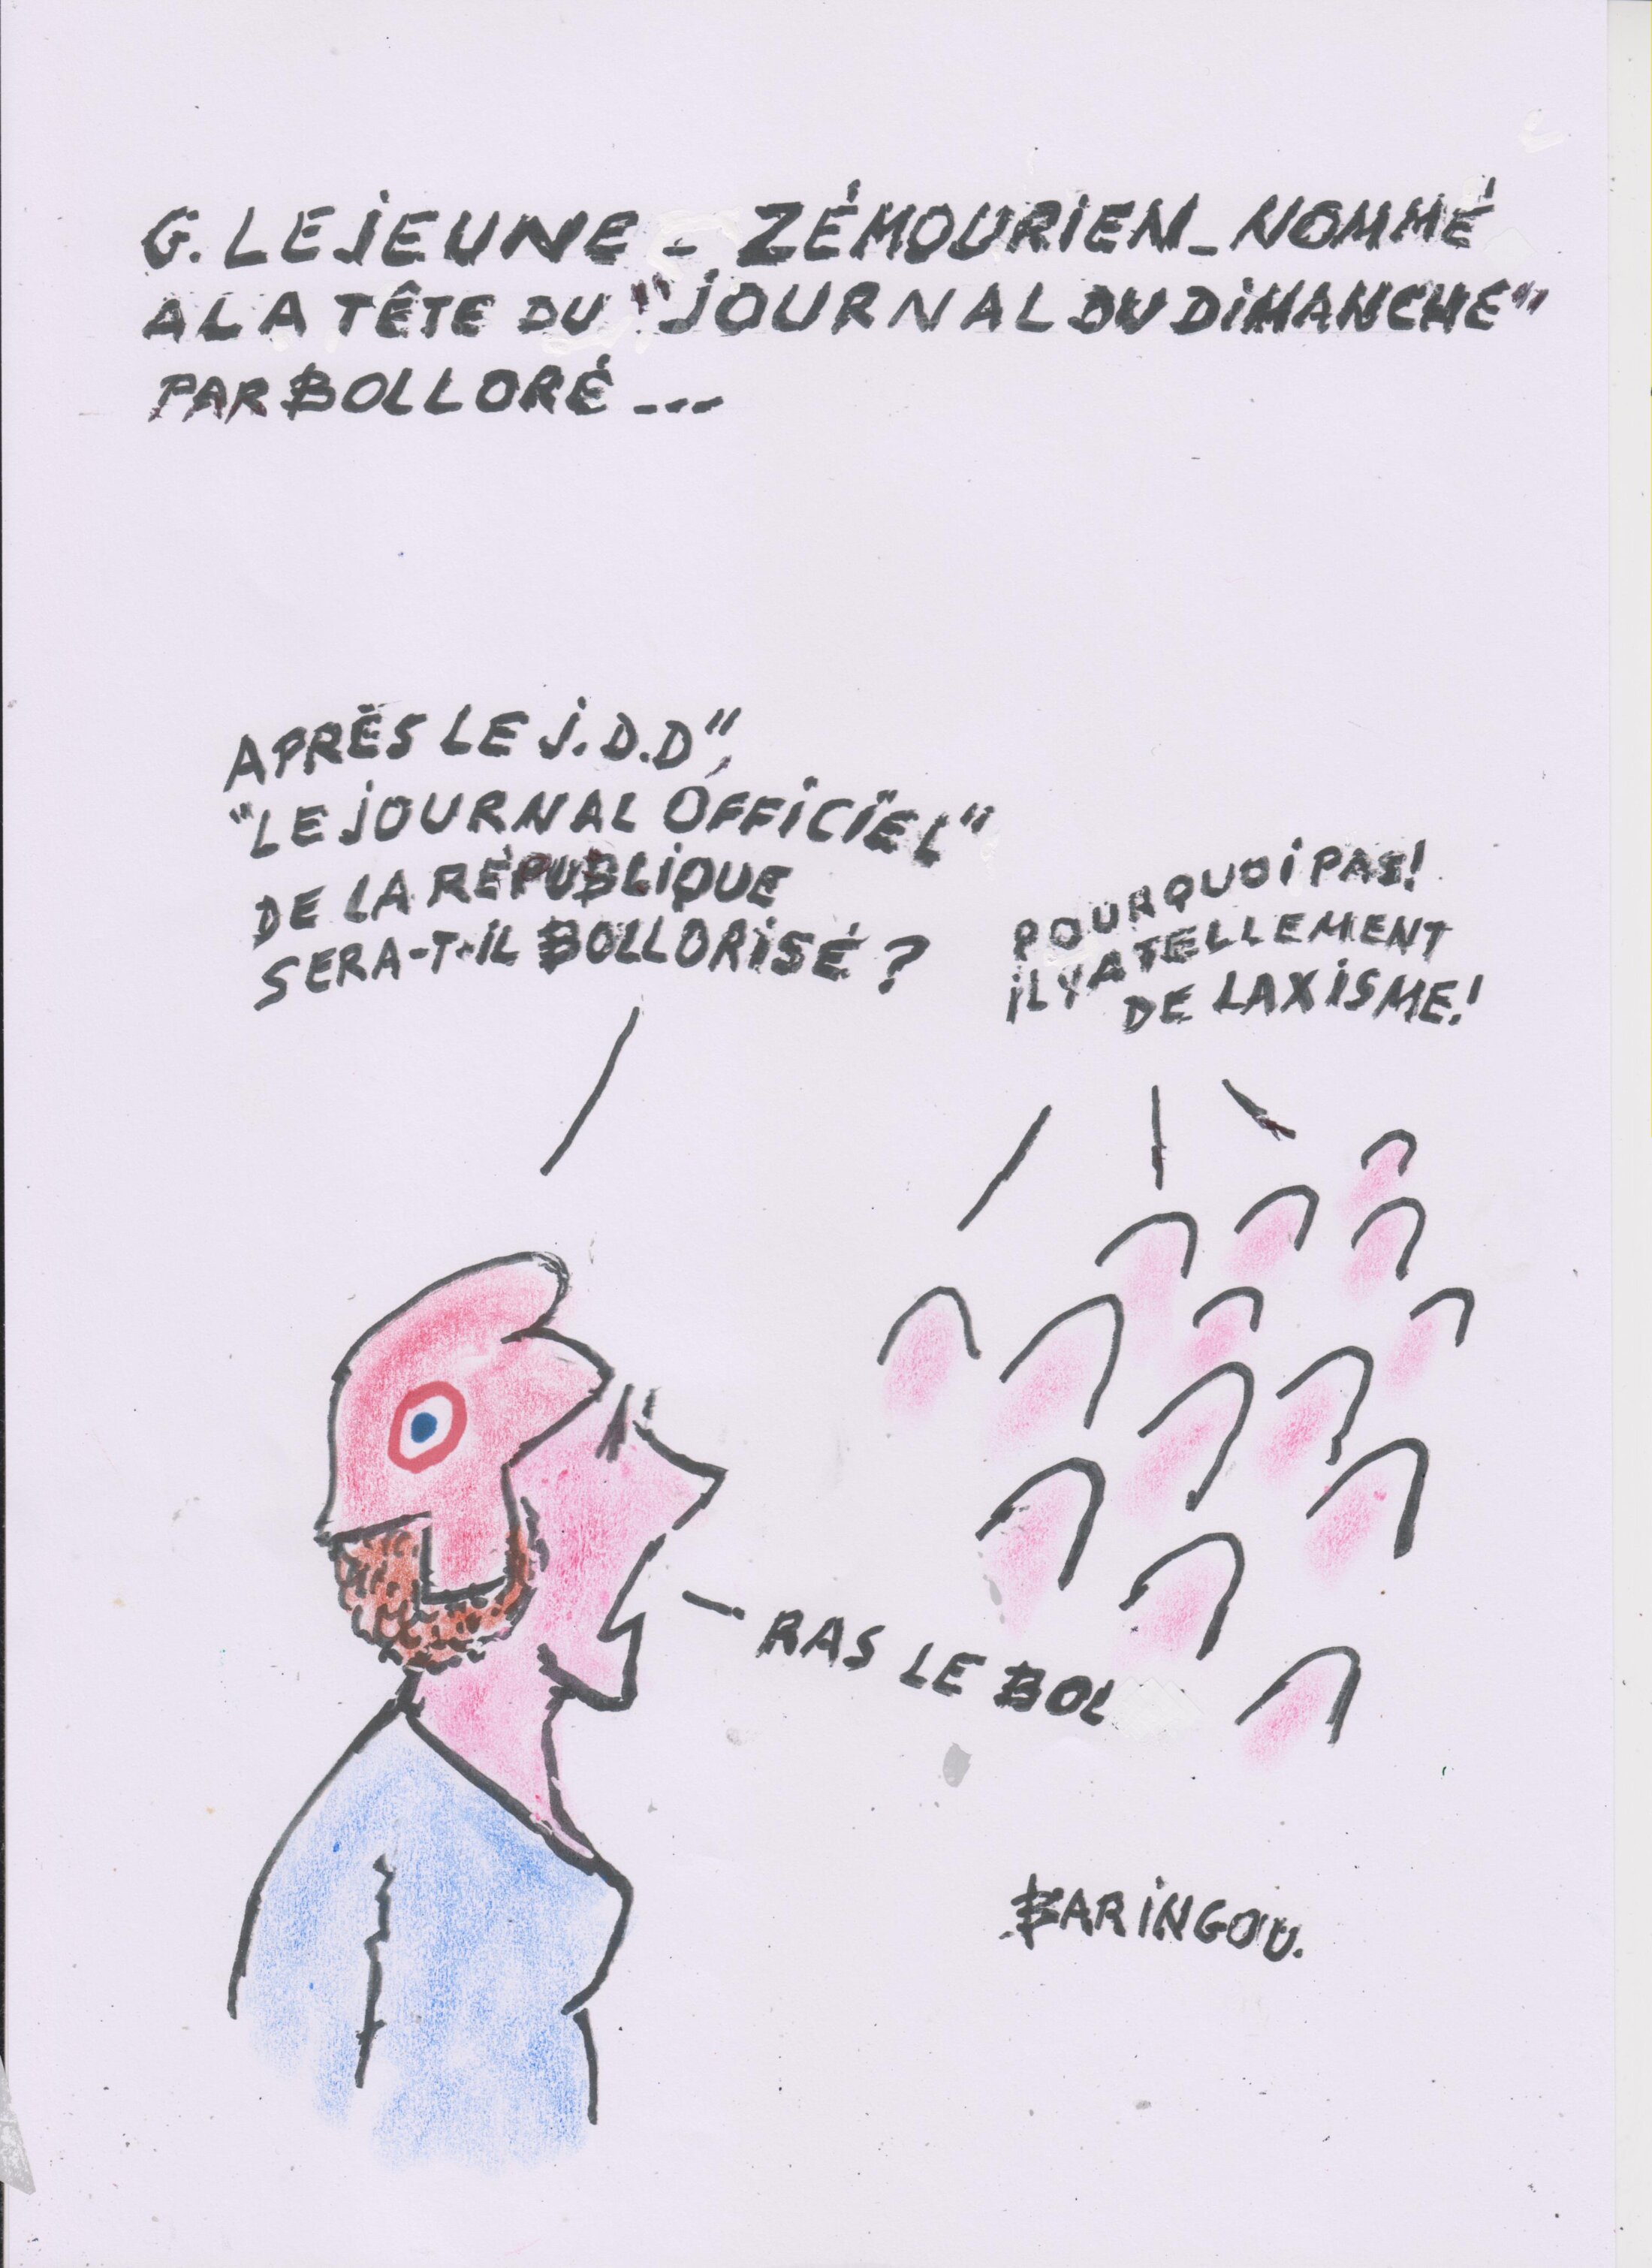 G. LEJEUNE - ZÉMOURIEN - NOMMÉ
A LA TÊTE DU "JOURNAL DU DIMANCHE"
PAR BOLLORÉ ---
APRÈS LE J.D.D",
"LE JOURNAL OFFICIEL"
DE LA RÉPUBLIQUE
SERA-T-IL BOLLORISÉ ?
POURQUOI PAS!
IL Y A TELLEMENT
DE LAXISME!
RAS LE BOL
BARINGOU.